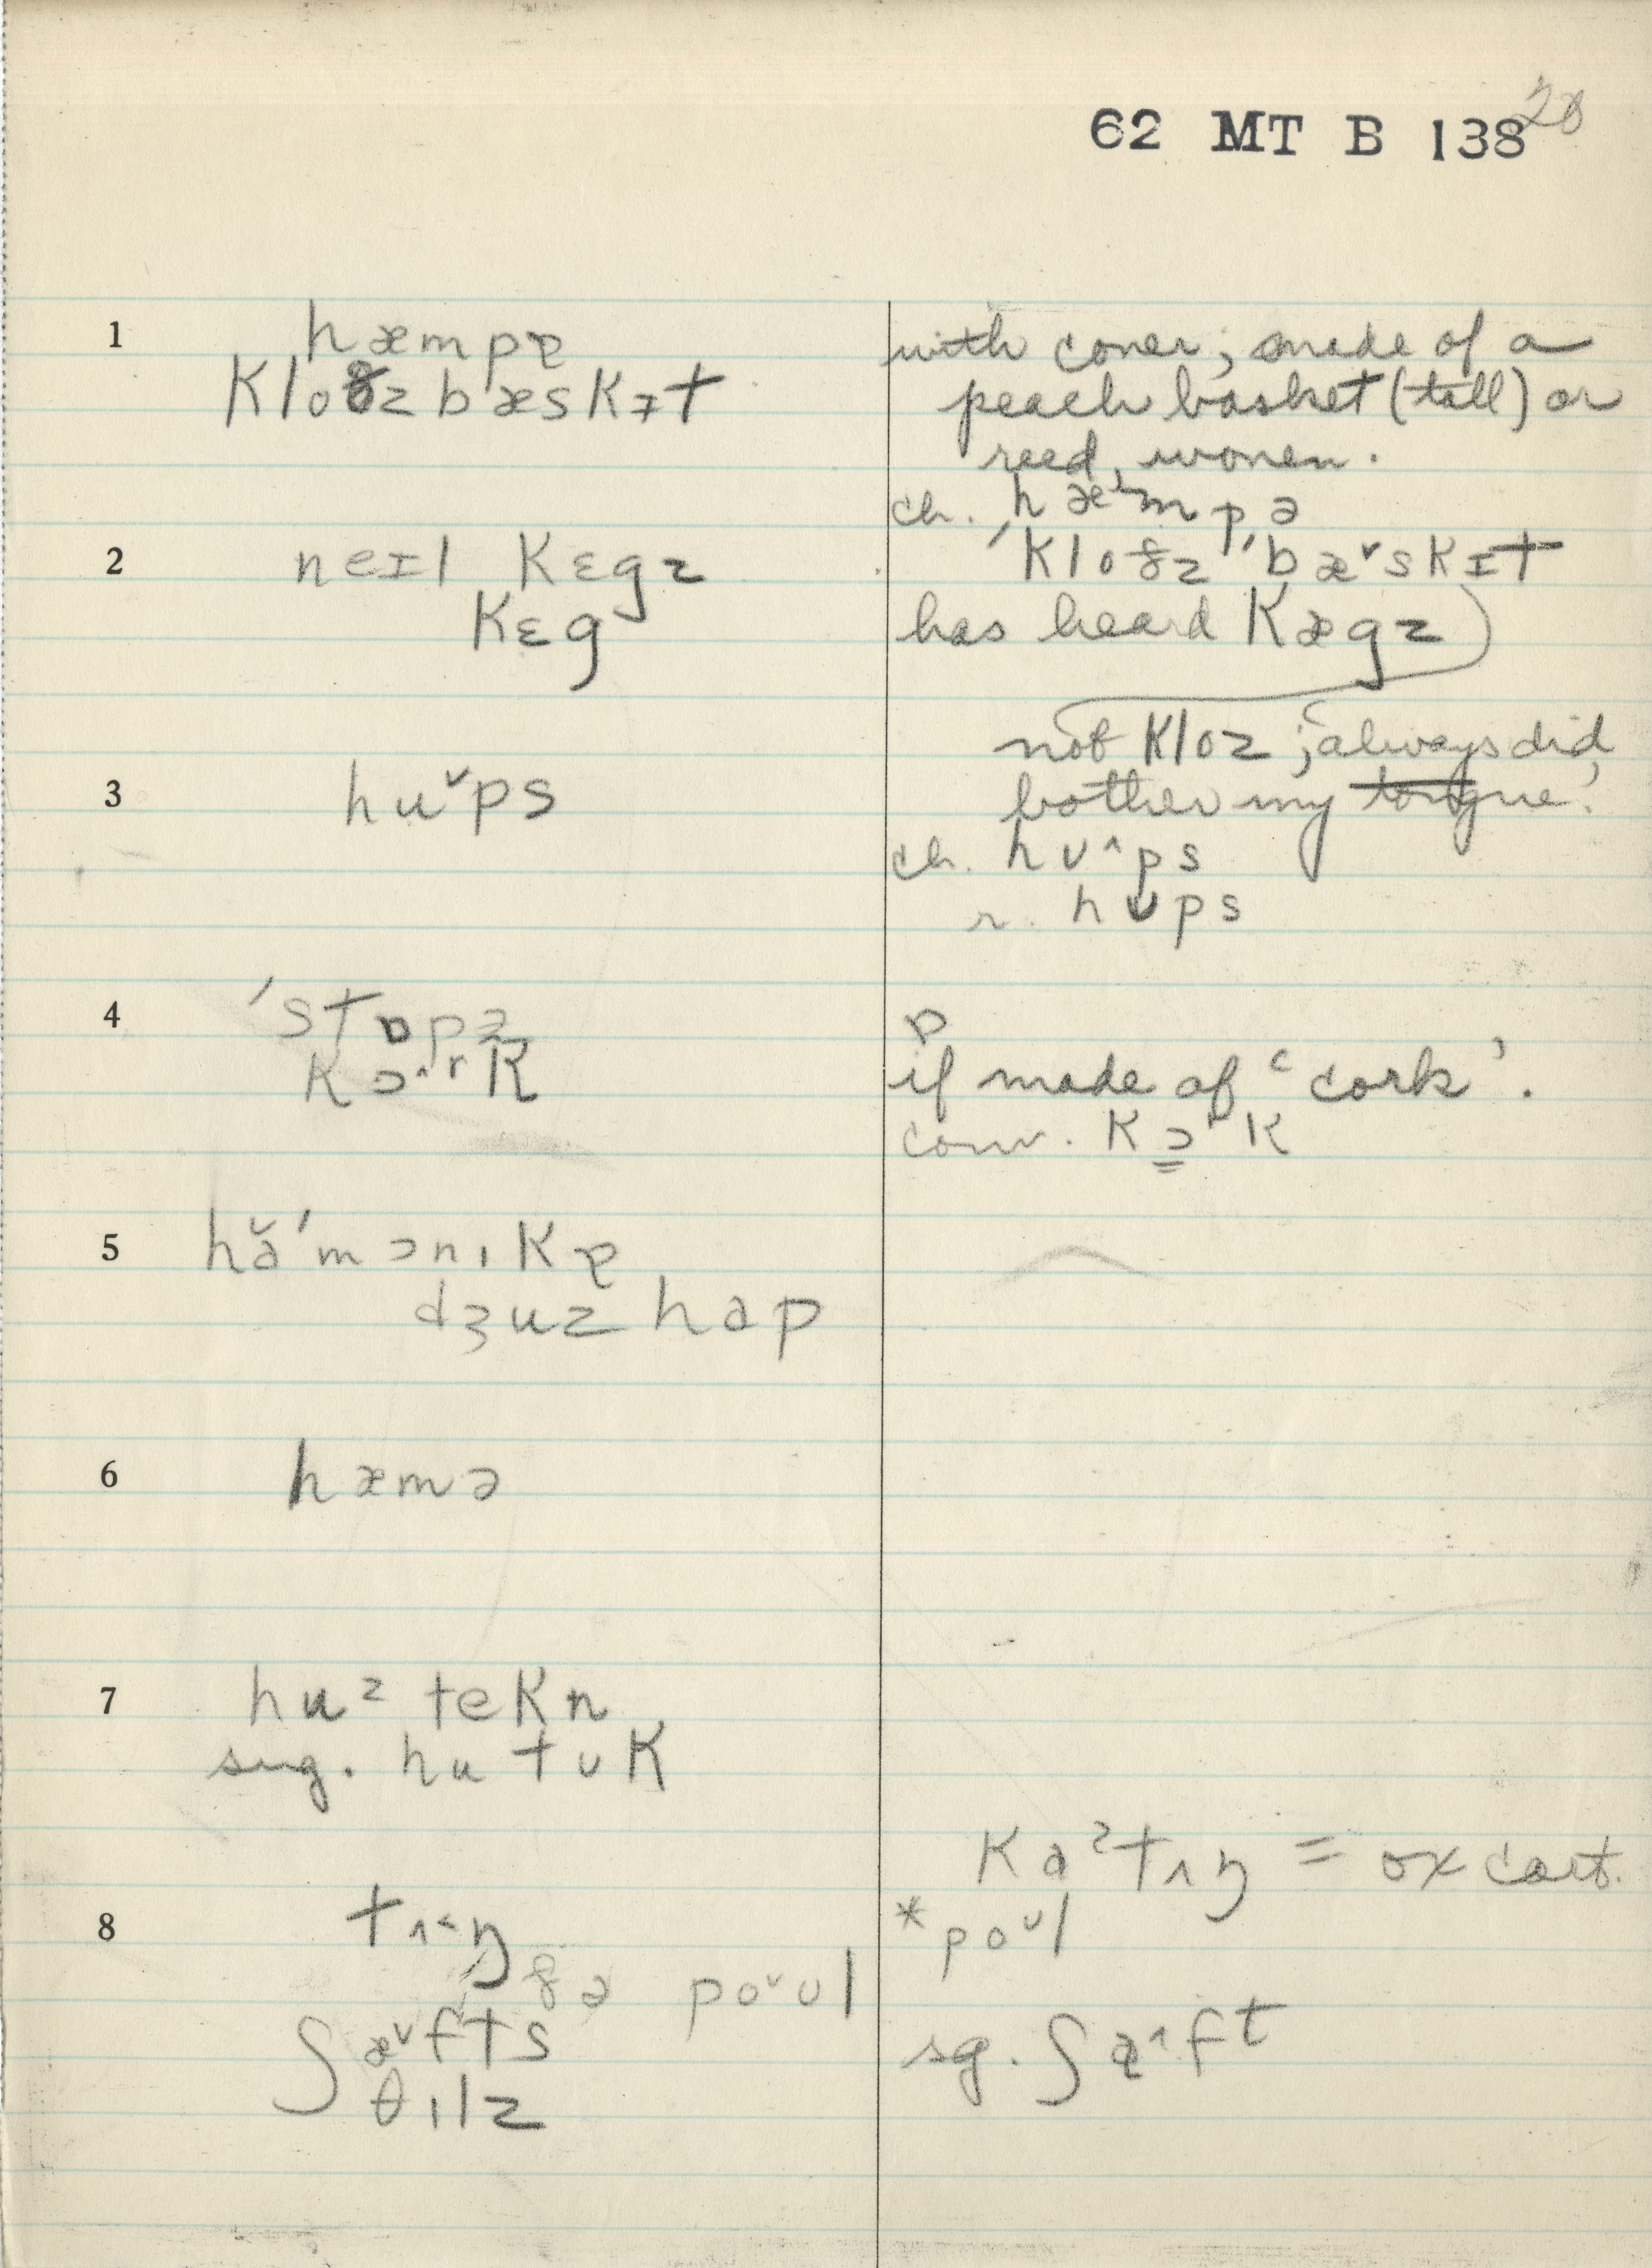 62 MT B 138 28
1 hæmpɐ
kloðz bæskɪt
with cover; made of a
peach basket (tall) or
reed, women.
ch. hæ˅mpə
ˈkloðz ˈbæ˅skɪt
2 neɪl kɛgz
kɛg
has heard kægz
not kloz; always did
bother my tongue!
3 hu˅ps
ch. hʊ^ps
r. hʊps
4 ˈstɒpə
kɔ^rk
ɒ
if made of ‘cork’.
conv. kɔrk
5 hăˈmɔnɪkɐ
dʒuz hap
6 hæmə
7 huz tekn
sug. hu tʊk
8 tʌ˂ŋ
ðə po˅ʊl
ʃæ˅fts
θɪlz
ka²tʌŋ = ox cart.
*poʊl
sg. ʃæ^ft